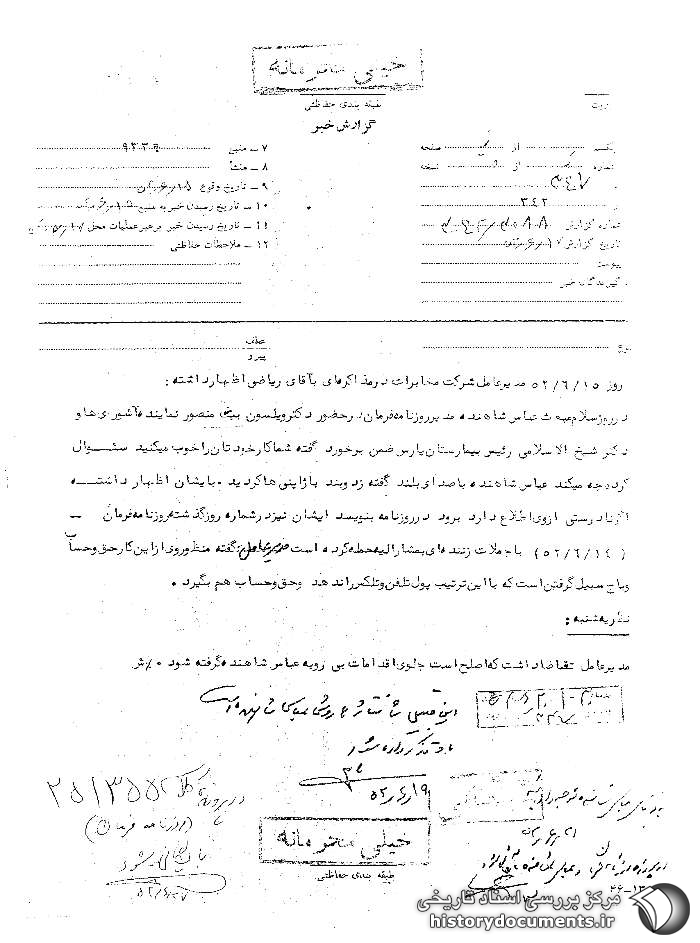 خیلی محرمانه
طبقه بندی حفاظتی
گزارش خبر
صفحه از یک
نسخه از شماره
۳۴۲
شماره گزارش
تاریخ گزارش
پیوست
گیرندگان خبر
۷ - منبع ۹۳۳۰
۸ - منشأ
۹ - تاریخ وقوع
۱۰ - تاریخ رسیدن خبر به منبع
۱۱ - تاریخ رسیدن خبر برهبر عملیات محل
۱۲ - ملاحظات حفاظتی
عطف
پیرو
روز ۵۲/۶/۱۵ مدیرعامل شرکت مخابرات در مذاکره‌ای با آقای ریاضی اظهار داشته :
در روز سلام مبعث عباس شاهنده مدیر روزنامه فرمان در حضور دکتر ویلسون بیت منصور نماینده آشوری ها و
دکتر شیخ الاسلامی رئیس بیمارستان پارس ضمن برخورد گفته شما کار خودتان را خوب میکنید سئوال
کرده چه میکند عباس شاهنده با صدای بلند گفته زد و بند با ژاپنی ها کردید . بایشان اظهار داشته
اگر نادرستی ازوی اطلاع دارد برود در روزنامه بنویسد ایشان نیز در شماره روز گذشته روزنامه فرمان -
( ۵۲/۶/۱۴ ) با جملات زننده ای بمشارالیه حمله کرده است مدیرعامل گفته منظور وی از این کار حق و حساب
و باج سبیل گرفتن است که با این ترتیب پول تلفن و تلکس را ندهد و حق و حساب هم بگیرد .
نظریه شنبه :
مدیرعامل تقاضا داشت که اصلح است جلوی اقدامات بی رویه عباس شاهنده گرفته شود .
این قسمتی از روش عباس شاهنده است
باو تذکر داده شود
۵۲/۶/۱۹
در پرونده کلاسه ۲۵۱۳۵۵
(روزنامه فرمان)
بایگانی شود
خیلی محرمانه
طبقه بندی حفاظتی
مرکز بررسی اسناد تاریخی
historydocuments.ir